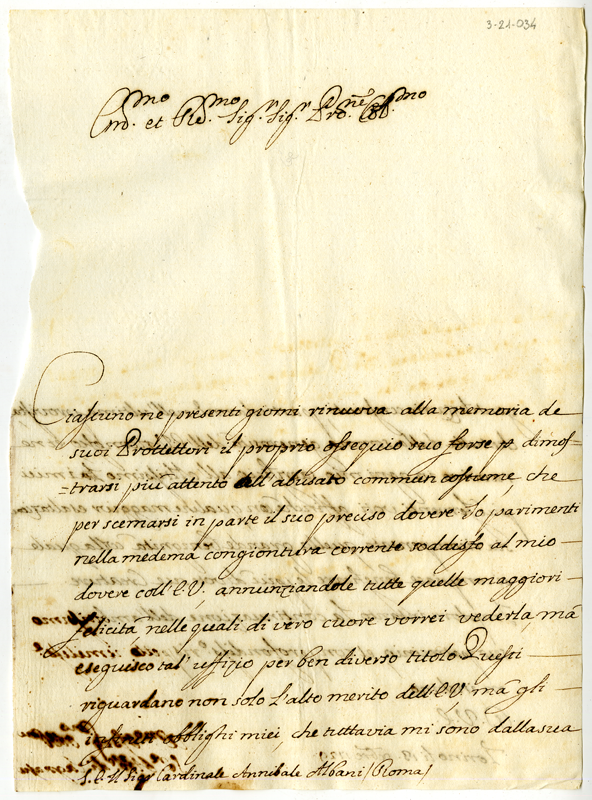 3-21-034
Em.mo et Re.mo Sig.r Sig.r Pro.ne Col.mo
Ciascuno ne presenti giorni rinuova alla memoria de
suoi Prottettori il proprio ossequio suo forse p dimos=
=trarsi più attento all'abusato commun costume, che
per scemarsi in parte il suo preciso dovere. Io parimenti
nella medema congiontura corrente soddisfo al mio
dovere coll'E.V., annunziandole tutte quelle maggiori
felicità, nelle quali di vero cuore vorrei vederla, mà
eseguisco tal' uffizio per ben diverso titolo. Questi
riguardano non solo l'alto merito dell'E.V., mà gli
infiniti obblighi miei, che tuttavia mi sono dalla sua
S. E. Il Sig.r Cardinale Annibale Albani (Roma)